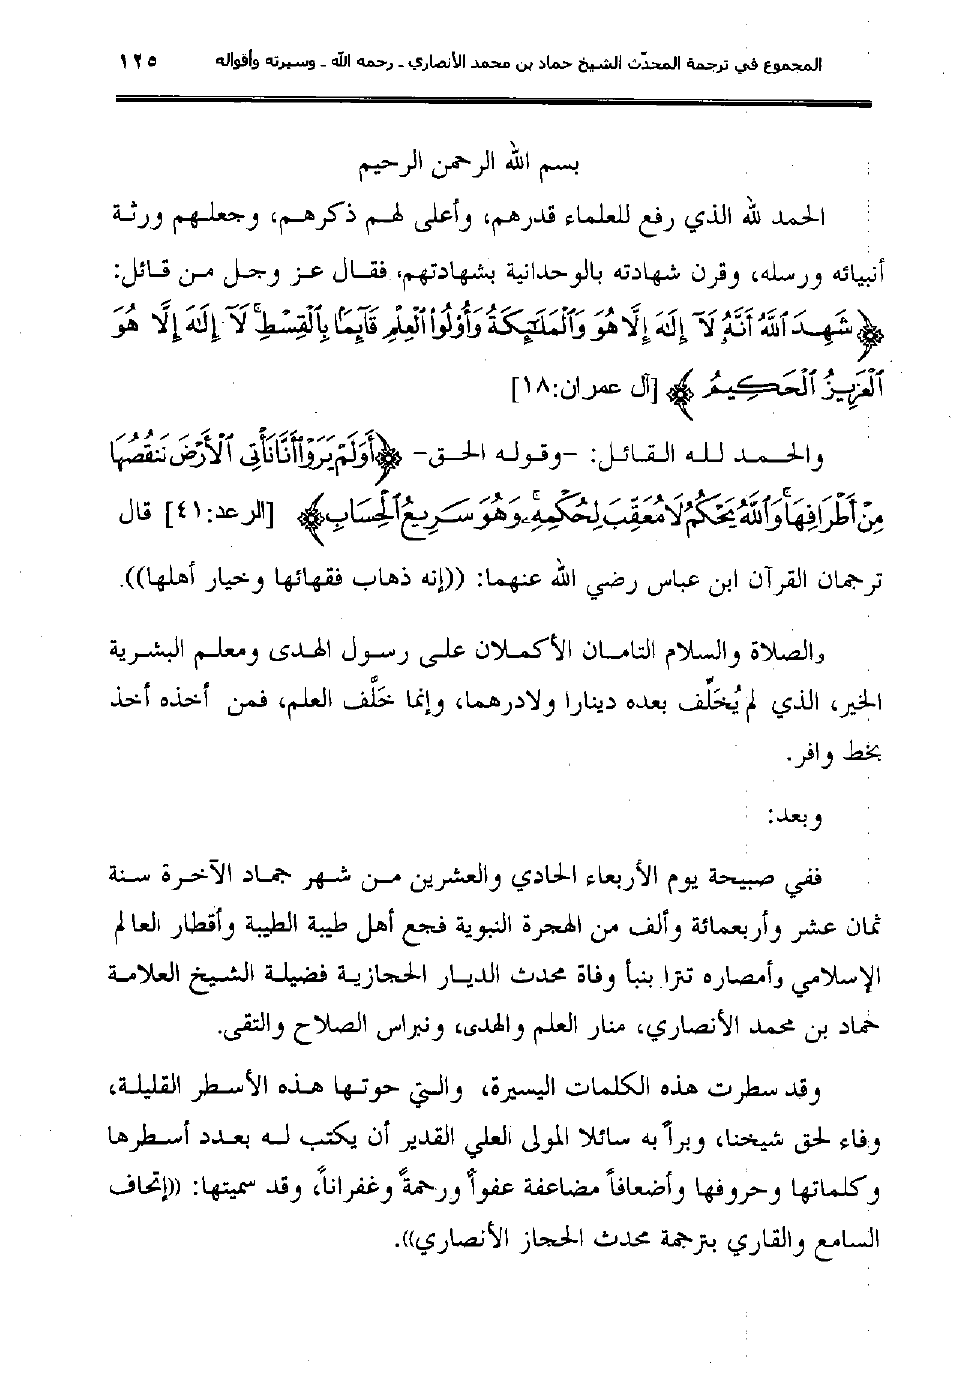 المجموع في ترجمة المحدّث الشيخ حماد بن محمد الأنصاري ـ رحمه الله ـ وسيرته وأقواله ١٢٥
بسم الله الرحمن الرحيم
الحمد لله الذي رفع للعلماء قدرهم، وأعلى لهم ذكرهم، وجعلهم ورثة
أنبيائه ورسله، وقرن شهادته بالوحدانية بشهادتهم، فقال عز وجل من قائل:
﴿شَهِدَ ٱللَّهُ أَنَّهُۥ لَآ إِلَٰهَ إِلَّا هُوَ وَٱلْمَلَٰٓئِكَةُ وَأُو۟لُوا۟ ٱلْعِلْمِ قَآئِمًۢا بِٱلْقِسْطِ ۚ لَآ إِلَٰهَ إِلَّا هُوَ
ٱلْعَزِيزُ ٱلْحَكِيمُ﴾ [آل عمران:١٨]
والحمد لله القائل: -وقوله الحق- ﴿أَوَلَمْ يَرَوْا۟ أَنَّا نَأْتِى ٱلْأَرْضَ نَنقُصُهَا
مِنْ أَطْرَافِهَا ۚ وَٱللَّهُ يَحْكُمُ لَا مُعَقِّبَ لِحُكْمِهِۦ ۚ وَهُوَ سَرِيعُ ٱلْحِسَابِ﴾ [الرعد:٤١] قال
ترجمان القرآن ابن عباس رضي الله عنهما: ((إنه ذهاب فقهائها وخيار أهلها)).
والصلاة والسلام التامان الأكملان على رسول الهدى ومعلم البشرية
الخير، الذي لم يُخَلِّف بعده دينارا ولادرهما، وإنما خَلَّف العلم، فمن أخذه أخذ
بخط وافر.
وبعد:
ففي صبيحة يوم الأربعاء الحادي والعشرين من شهر جماد الآخرة سنة
ثمان عشر وأربعمائة وألف من الهجرة النبوية فجع أهل طيبة الطيبة وأقطار العالم
الإسلامي وأمصاره تترا بنبأ وفاة محدث الديار الحجازية فضيلة الشيخ العلامة
حماد بن محمد الأنصاري، منار العلم والهدى، ونبراس الصلاح والتقى.
وقد سطرت هذه الكلمات اليسيرة، والتي حوتها هذه الأسطر القليلة،
وفاء لحق شيخنا، وبراً به سائلا المولى العلي القدير أن يكتب له بعدد أسطرها
وكلماتها وحروفها وأضعافاً مضاعفة عفواً ورحمةً وغفراناً، وقد سميتها: ((إتحاف
السامع والقاري بترجمة محدث الحجاز الأنصاري)).